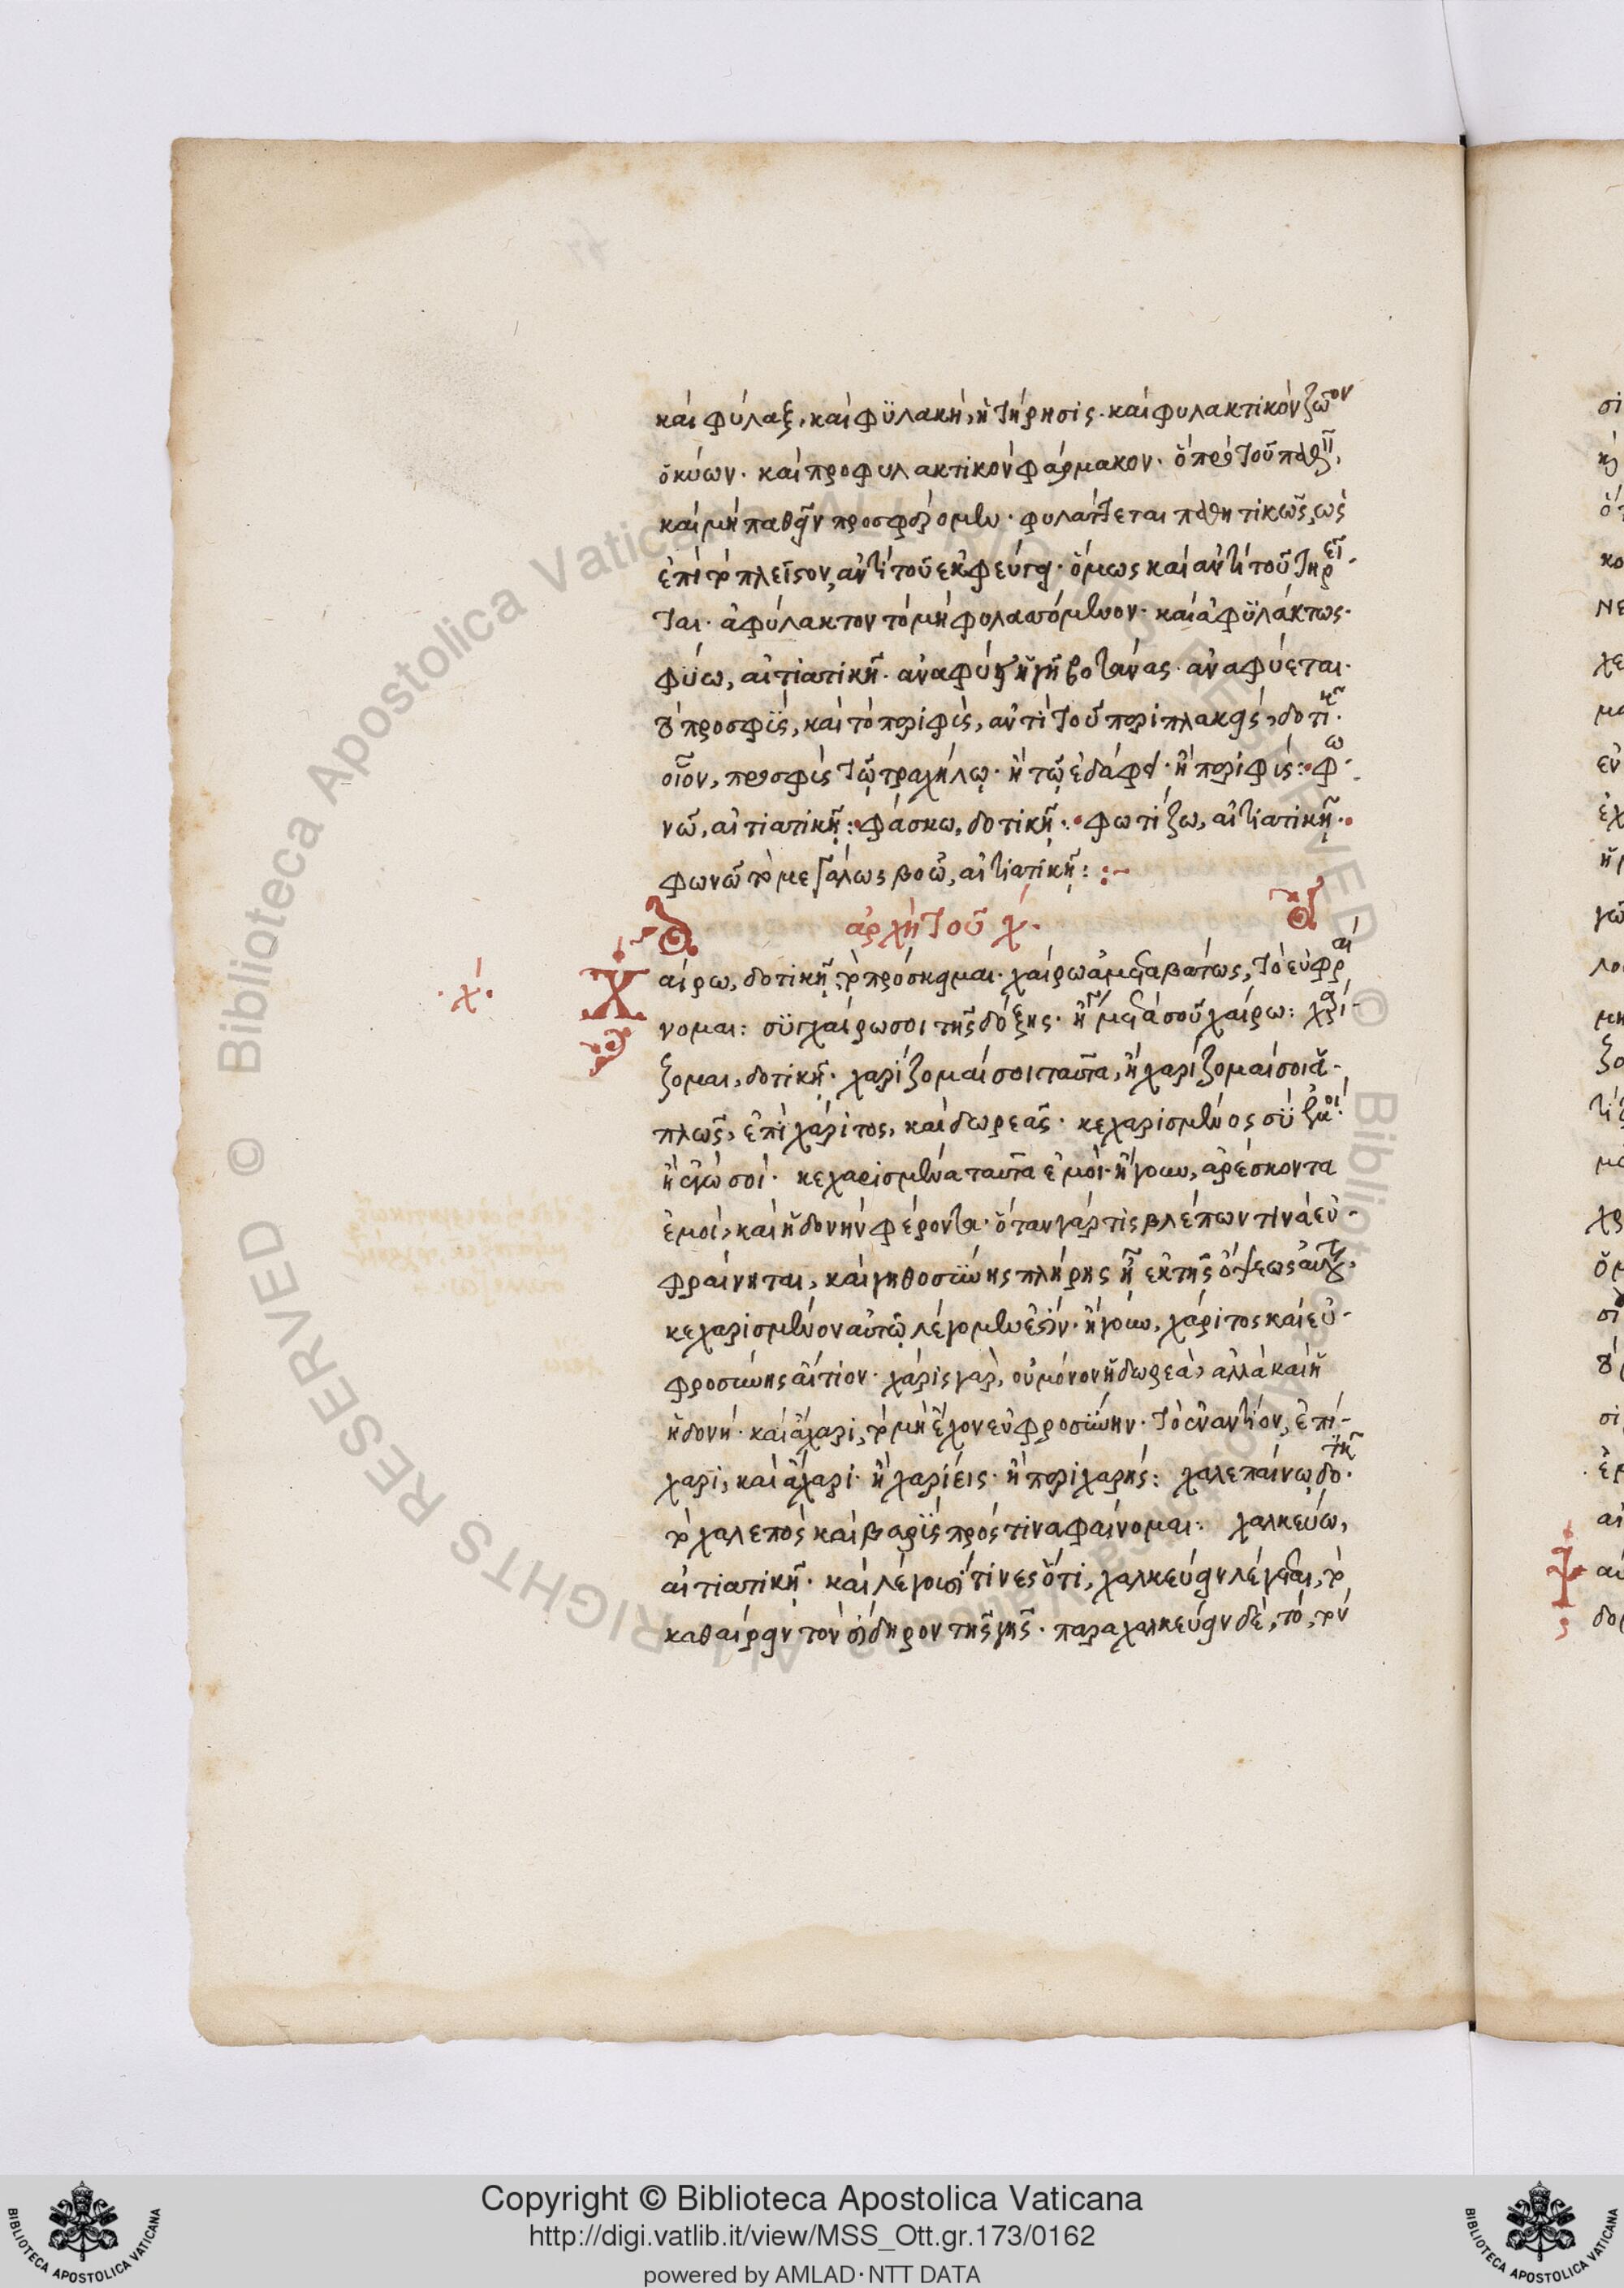 καὶ φύλαξ, καὶ φϋλακὴ, ἡ τήρησις. καὶ φυλακτικὸν ζῶον
ὁ κύων. καὶ προφυλακτικὸν φάρμακον. ὁ πρὸ τοῦ
καὶ μὴ παθεῖν προσφερόμεν. φυλάττεται παθητικῶς, ὡς
ἐπὶ τὸ πλεῖστον, ἀντὶ τοῦ ἐκφεύγει. ὅμως καὶ ἀντὶ τοῦ τηρεῖ
ται. ἀφύλακτον τὸ μὴ φυλασσόμενον. καὶ ἀφϋλάκτως.
φϋω, αἰτιατικῆ. ἀναφύει ἡ γῆ βοτάνας. ἀναφύεται.
οὗ προσφϋὲς, καὶ τὸ περιφυὲς, ἀντὶ τοῦ περιπλακεὶς, δοτικῆ.
οἷον, προσφὺς τῷ τραχήλῳ. ἢ τῷ ἐδάφει. ἢ περιφύς: φω
νῶ, αἰτιατικῇ: φάσκω, δοτικῇ: φωτίζω, αἰτιατικῇ.
φωνῶ τὸ μεγάλως βοῶ, αἰτιατικῇ: :-
ἀρχὴ τοῦ χ.
.χ.
Χαίρω, δοτικῇ: τὸ πρόσκειμαι. χαίρω ἀμεταβάτως, τὸ εὐφραί
νομαι: συγχαίρω σοι τῆς δόξης. ἢ μετὰ σοῦ χαίρω: χαρί
ζομαι, δοτικῇ. χαρίζομαί σοι ταῦτα, ἢ χαρίζομαί σοι ἁ
πλῶς, ἐπὶ χάριτος, καὶ δωρεᾶς. κεχαρισμένος σὺ ἐμοὶ
ἢ ἐγὼ σοί. κεχαρισμένα ταῦτα ἐμοὶ. ἤγουν, ἀρέσκοντα
ἐμοὶ, καὶ ἡδονὴν φέροντα. ὅταν γάρ τις βλέπων τινὰ εὐ
φραίνηται, καὶ γηθοσύνης πλήρης ἦ ἐκ τῆς ὄψεως αὐτοῦ,
κεχαρισμένον αὐτῷ λέγομεν ἐστὶν. ἤγουν, χάριτος καὶ εὐ
φροσύνης αἴτιον. χάρις γὰρ, οὐ μόνον ἡ δωρεὰ, ἀλλὰ καὶ ἡ
ἡδονή. καὶ ἄχαρι, τὸ μὴ ἔχον εὐφροσύνην. τὸ ἐναντίον, ἐπί
χαρι, καὶ ἄχαρι. ἢ χαρίεις. ἢ περιχαρής: χαλεπαίνω, δοτικῇ.
τὸ χαλεπὸς καὶ βαρϋς πρός τινα φαίνομαι: χαλκεύω,
αἰτιατικῇ. καὶ λέγουσί τινες ὅτι, χαλκεύειν λέγεται, τὸ
καθαίρειν τὸν σίδηρον τῆς γῆς. παραχαλκεύειν δὲ, τὸ, τὸν
Copyright © Biblioteca Apostolica Vaticana
http://digi.vatlib.it/view/MSS_Ott.gr.173/0162
powered by AMLAD·NTT DATA